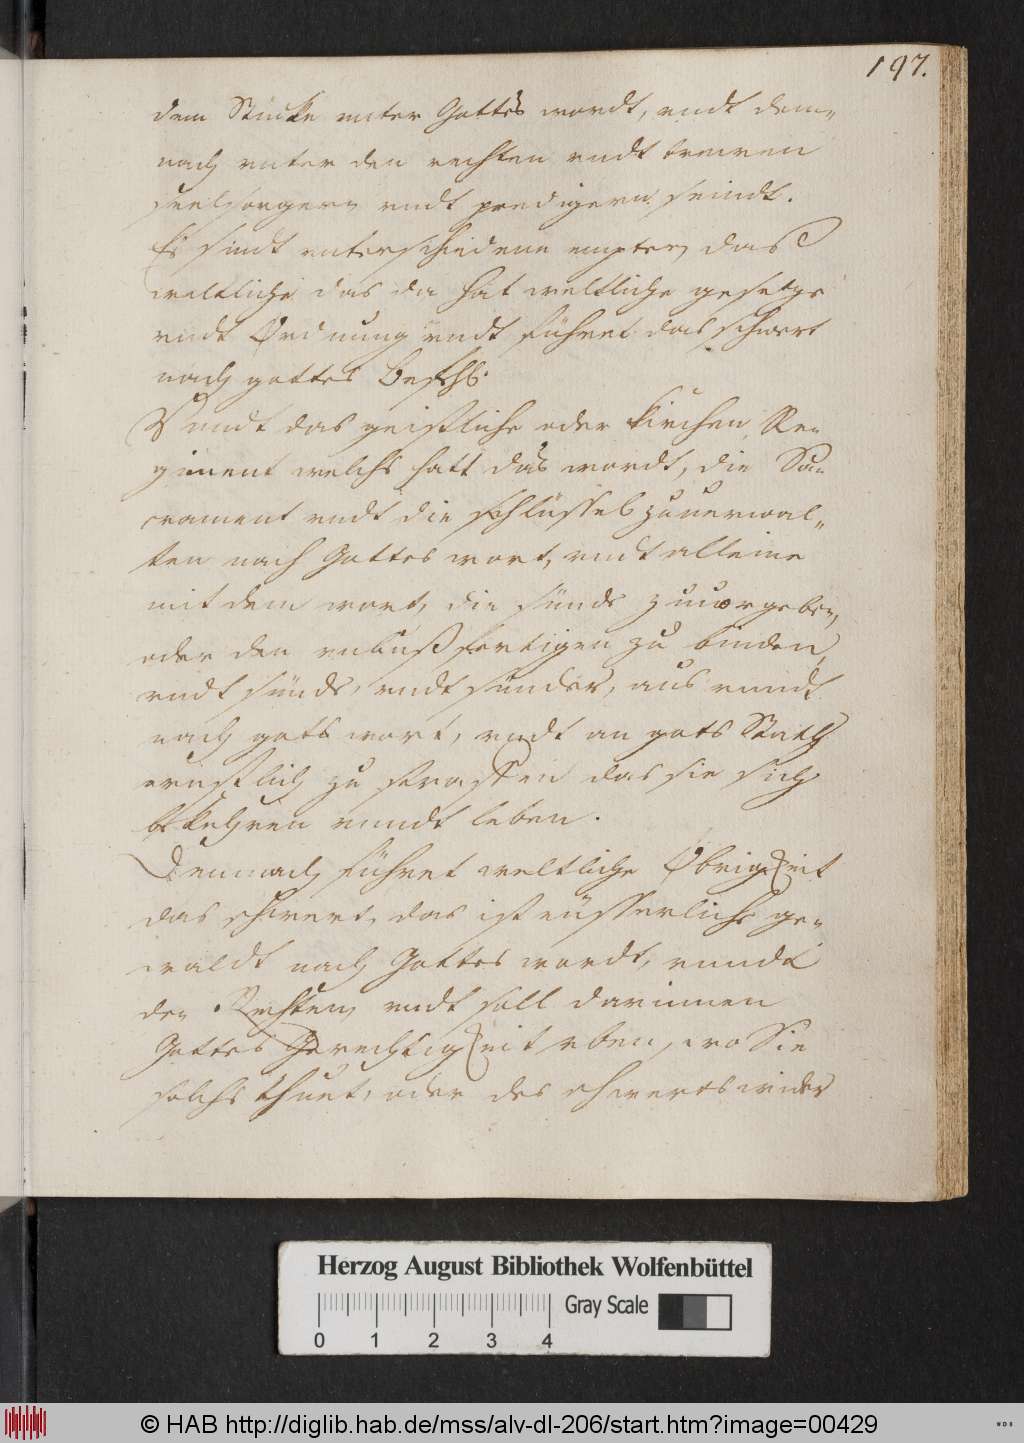 197.
dem Stucke unter Gottes wordt, undt dem-
nach unter den rechten undt trewen
seelsorgern undt predigern seindt.
Es sindt unterschiedene empter, das
weltliche das da hat weltliche gesetze
undt Ordnung undt führet das schwert
nach gottes Befehl.
Vundt das geistliche oder Kirchen Re-
giment welchs hatt das wordt, die Sa-
crament undt die schlüssel zuuerwal-
ten nach Gottes wort, undt alleine
mit dem wort, die sünde zuuorgeben,
oder den unbußfertigen zu binden,
undt sünde, undt sünder, aus
nach gots wort, undt an gots Stath
ernstlich zu straffen das sie sich
bekehren vundt leben.
Demnach führet weltliche Obrigkeit
das schwert, das ist eüsserliche ge-
waldt nach Gottes wordt, vundt
den Rechten, undt soll darinnen
Gottes Gerechtigkeit eben, wo Sie
solchs thuet, oder des schwerts wider
Herzog August Bibliothek Wolfenbüttel
Gray Scale
0 1 2 3 4
© HAB http://diglib.hab.de/mss/alv-dl-206/start.htm?image=00429